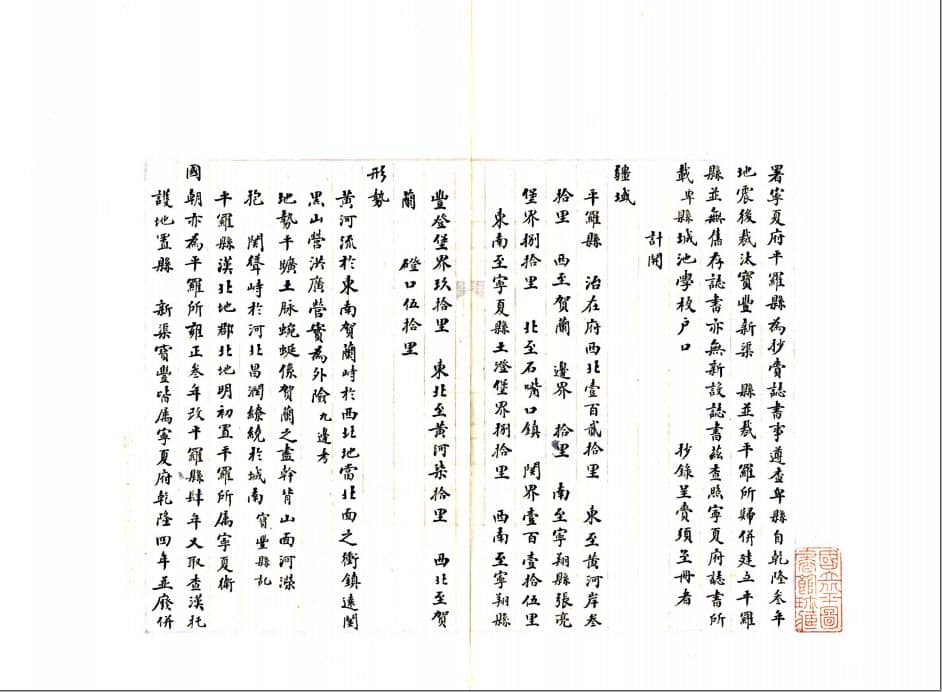 署寧夏府平羅縣為抄賫誌書事遵查卑縣自乾隆叁年
地震後裁汰寶豐新渠 縣並裁平羅所歸併建立平羅
縣並無舊存誌書亦無新設誌書茲查照寧夏府誌書所
載卑縣城池學校户口 抄錄呈賫須至冊者
計開
疆域
平羅縣 治在府西北壹百貳拾里 東至黄河岸叁
拾里 西至賀蘭 邊界 拾里 南至寧翔縣張亮
堡界捌拾里 北至石嘴口鎮 関界壹百壹拾伍里
東南至寧夏縣王澄堡界捌拾里 西南至寧翔縣
豐登堡界玖拾里 東北至黄河柒拾里 西北至賀
蘭 磴口伍拾里
形勢
黄河流於東南賀蘭峙於西北地當北面之衝鎮遠関
黑山營洪廣營實為外險九邊考
地勢平曠土脉蜿蜒係賀蘭之盡幹背山面河潆
抱 関聳峙於河北昌潤繚繞於城南 寳豐縣記
平羅縣漢北地郡北地明初置平羅所属寧夏衛
國朝亦為平羅所雍正叁年改平羅縣肆年又取查漢托
護地置縣 新渠寳豐皆属寧夏府乾隆四年並廢併
國立北平圖
書館珍藏